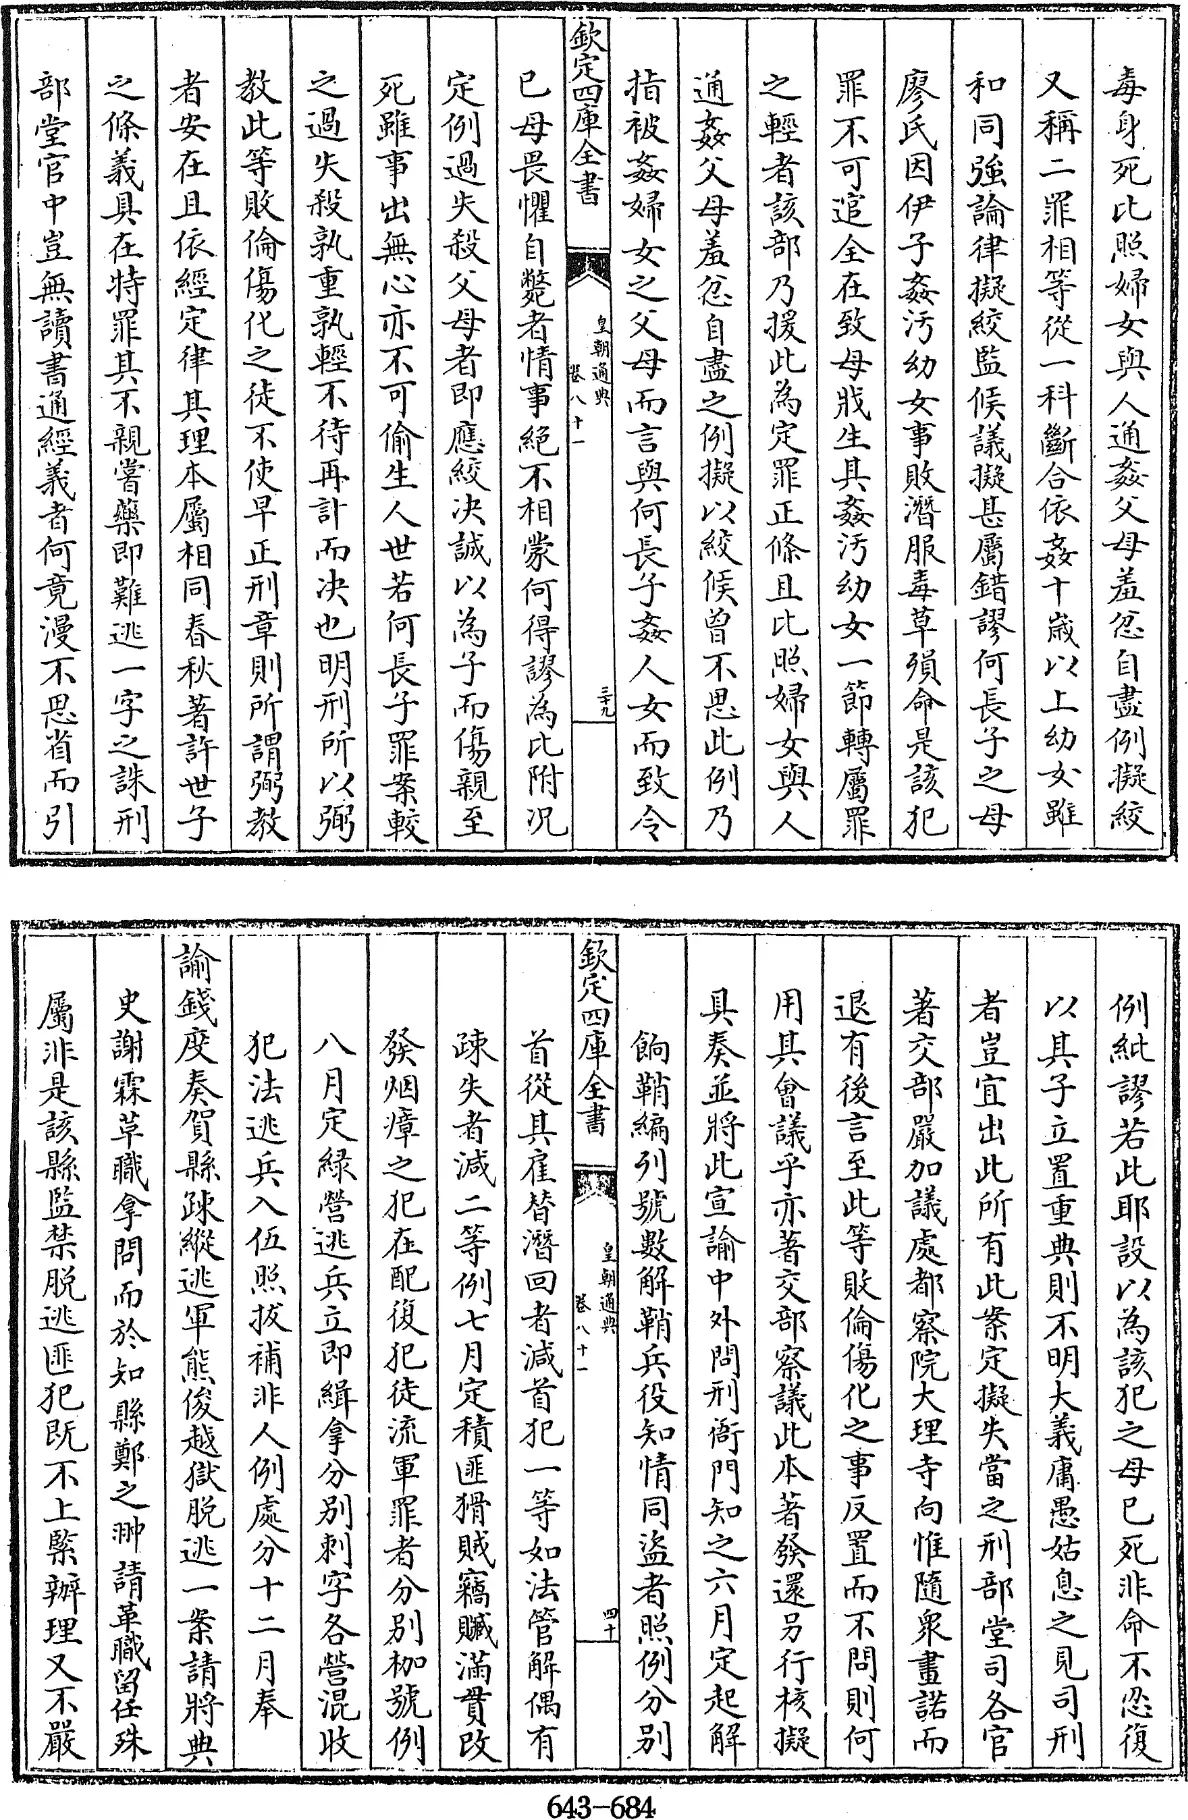 毒身死比照婦女與人通姦父母羞忿自盡例擬絞
又稱二罪相等從一科斷合依姦十歲以上幼女雖
和同強論律擬絞監候議擬甚屬錯謬何長子之母
廖氏因伊子姦汚幼女事敗潛服毒草殞命是該犯
罪不可逭全在致母戕生其姦汚幼女一節轉屬罪
之輕者該部乃援此為定罪正條且比照婦女與人
通姦父母羞忿自盡之例擬以絞候曾不思此例乃
指被姦婦女之父母而言與何長子姦人女而致令
欽定四庫全書
皇朝通典
卷八十一
三十九
已母畏懼自斃者情事絕不相蒙何得謬為比附況
定例過失殺父母者即應絞決誠以為子而傷親至
死雖事出無心亦不可偷生人世若何長子罪案較
之過失殺孰重孰輕不待再計而決也明刑所以弼
教此等敗倫傷化之徒不使早正刑章則所謂弼教
者安在且依經定律其理本屬相同春秋著許世子
之條義具在特罪其不親嘗藥即難逃一字之誅刑
部堂官中豈無讀書通經義者何竟漫不思省而引
例紕謬若此耶設以為該犯之母已死非命不忍復
以其子立置重典則不明大義庸愚姑息之見司刑
者豈宜出此所有此案定擬失當之刑部堂司各官
著交部嚴加議處都察院大理寺向惟隨衆畫諾而
退有後言至此等敗倫傷化之事反置而不問則何
用其會議乎亦著交部察議此本著發還另行核擬
具奏並將此宣諭中外問刑衙門知之六月定起解
餉鞘編列號數解鞘兵役知情同盜者照例分別
欽定四庫全書
皇朝通典
卷八十一
四十
首從其雇替潛回者減首犯一等如法管解偶有
疎失者減二等例七月定積匪猾賊竊贓滿貫改
發烟瘴之犯在配復犯徒流軍罪者分別枷號例
八月定綠營逃兵立即緝拿分別刺字各營混收
犯法逃兵入伍照拔補非人例處分十二月奉
諭錢度奏賀縣疎縱逃軍熊俊越獄脫逃一案請將典
史謝霖草職拿問而於知縣鄭之翀請革職留任殊
屬非是該縣監禁脫逃匪犯既不上緊辦理又不嚴
643-684